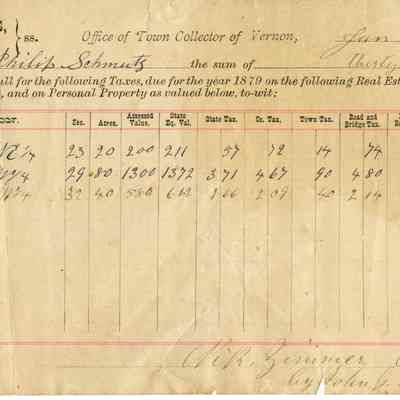 ss. Office of Town Collector of Vernon, Jan
Philip Schmutz the sum of Thirty
all for the following Taxes, due for the year 1879 on the following Real Est
and on Personal Property as valued below, to-wit:
Sec. Acres. Assessed Value. State Eq. Val. State Tax. Co. Tax. Town Tax. Road and Bridge Tax.
N E 1/4 23 20 200 211 57 72 14 74
1/4 29 80 1300 1372 3.71 4 67 90 4 80
1/4 32 40 580 2 09 40 2 14
Nik. Zimmer
by John J.